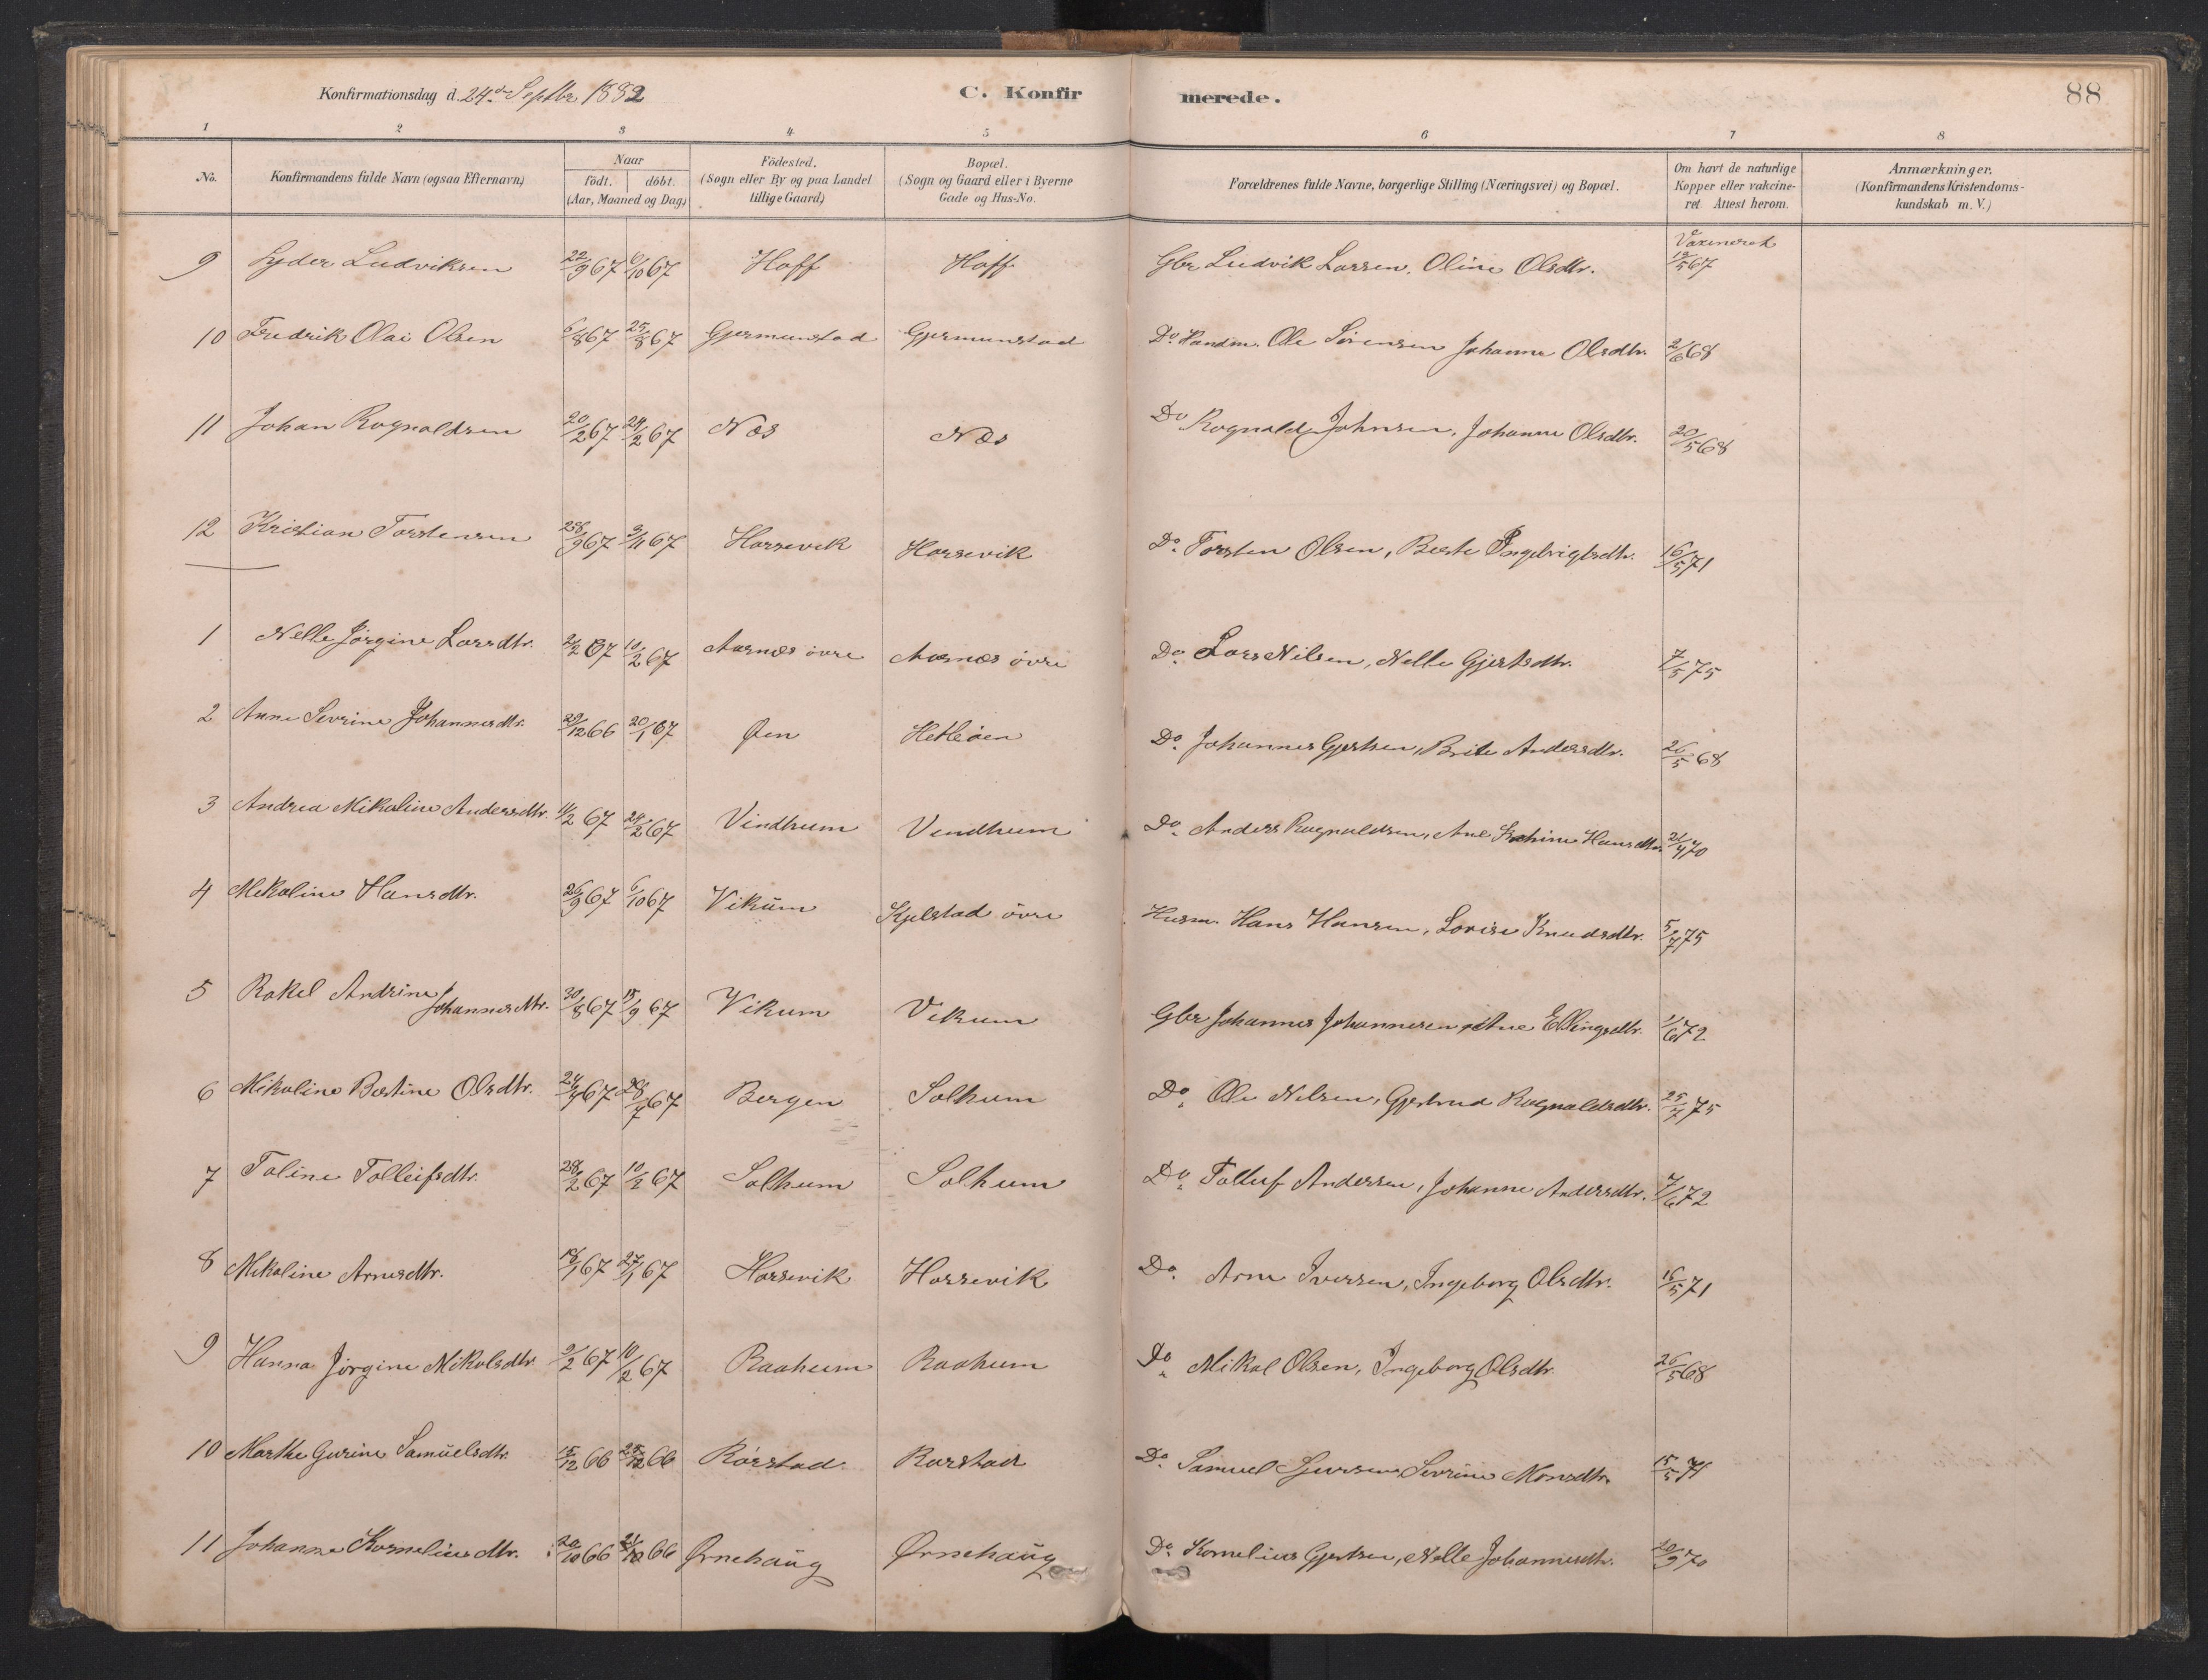 Konfirmationsdag d. 24de Septbr 1882
C. Konfirmerede.
88
1 2 3 4 5 6 7 8
No.
Konfirmandens fulde Navn (ogsaa Efternavn)
Naar
födt. döbt.
(Aar, Maaned og Dag)
Födested.
(Sogn eller By og paa Landet
tillige Gaard)
Bopæl.
(Sogn og Gaard eller i Byerne
Gade og Hus-No.
Forældrenes fulde Navne, borgerlige Stilling (Næringsvei) og Bopæl.
Om havt de naturlige
Kopper eller vakcine-
ret Attest herom.
Anmærkninger.
(Konfirmandens Kristendoms-
kundskab m. V.)
Vaxineret
9 Lyder Ludviksen 22/9 67 6/10 67 Hoff Hoff Gbr Ludvik Larsen, Oline Olsdtr. 12/5 67
10 Fredrik Olai Olsen 6/8 67 25/8 67 Gjermunstad Gjermunstad Do. Handm. Ole Sørensen Johanne Olsdtr. 2/6 68
11 Johan Rognaldsen 20/2 67 24/2 67 Næs Næs Do Rognald Johnsen, Johanne Olsdtr. 20/5 68
12 Kristian Torstensen 28/9 67 3/11 67 Horsevik Horsevik Do. Torsten Olsen, Berte Ingebrigtsdtr. 16/5 71
1 Nelle Jørgine Larsdtr. 2/2 67 10/2 67 Aarnæs övre Aarnæs övre Do. Lars Nilsen, Nelle Gjertsdtr. 7/5 75
2 Anne Sevrine Johannesdtr. 29/12 66 20/1 67 Øen Hetleöen Do. Johannes Gjertsen, Brite Andersdtr. 26/5 68
3 Andrea Mikaline Andersdtr. 11/2 67 24/2 67 Vindhum Vindhum Do. Anders Rognaldsen, Ane Hansdtr. 21/4 70
4 Mikaline Hansdtr. 26/9 67 6/10 67 Vikum Kjelstad övre Husm. Hans Hansen, Lovise Knudsdtr. 5/7 75
5 Rakel Andrine Johannesdtr. 30/8 67 15/9 67 Vikum Vikum Gbr Johannes Johannesen, Ane Ellingsdtr. 1/6 72
6 Mikaline Bertine Olsdtr. 24/7 67 28/7 67 Bergen Solhum Do. Ole Nilsen, Gjertrud Rognaldsdtr. 25/7 75
7 Taline Tolleifsdtr. 28/2 67 10/2 67 Solhum Solhum Do. Tolleif Andersen, Johanne Andersdtr. 7/6 72
8 Mikaline Arnesdtr. 18/1 67 27/1 67 Horsevik Horsevik Do. Arne Iversen, Ingeborg Olsdtr. 16/5 71
9 Hanna Jørgine Mikalsdtr. 2/2 67 10/2 67 Raahum Raahum Do. Mikal Olsen, Ingeborg Olsdtr. 26/5 68
10 Marthe Gurine Samuelsdtr. 15/12 66 25/12 66 Rörstad Rorstad Do. Samuel Sjursen Sevrine Monsdtr. 15/5 71
11 Johanne Korneliusdtr. 20/10 66 21/10 66 Ørnehaug Ørnehaug Do. Kornelius Gjertsen, Nelle Johannesdtr. 20/9 70